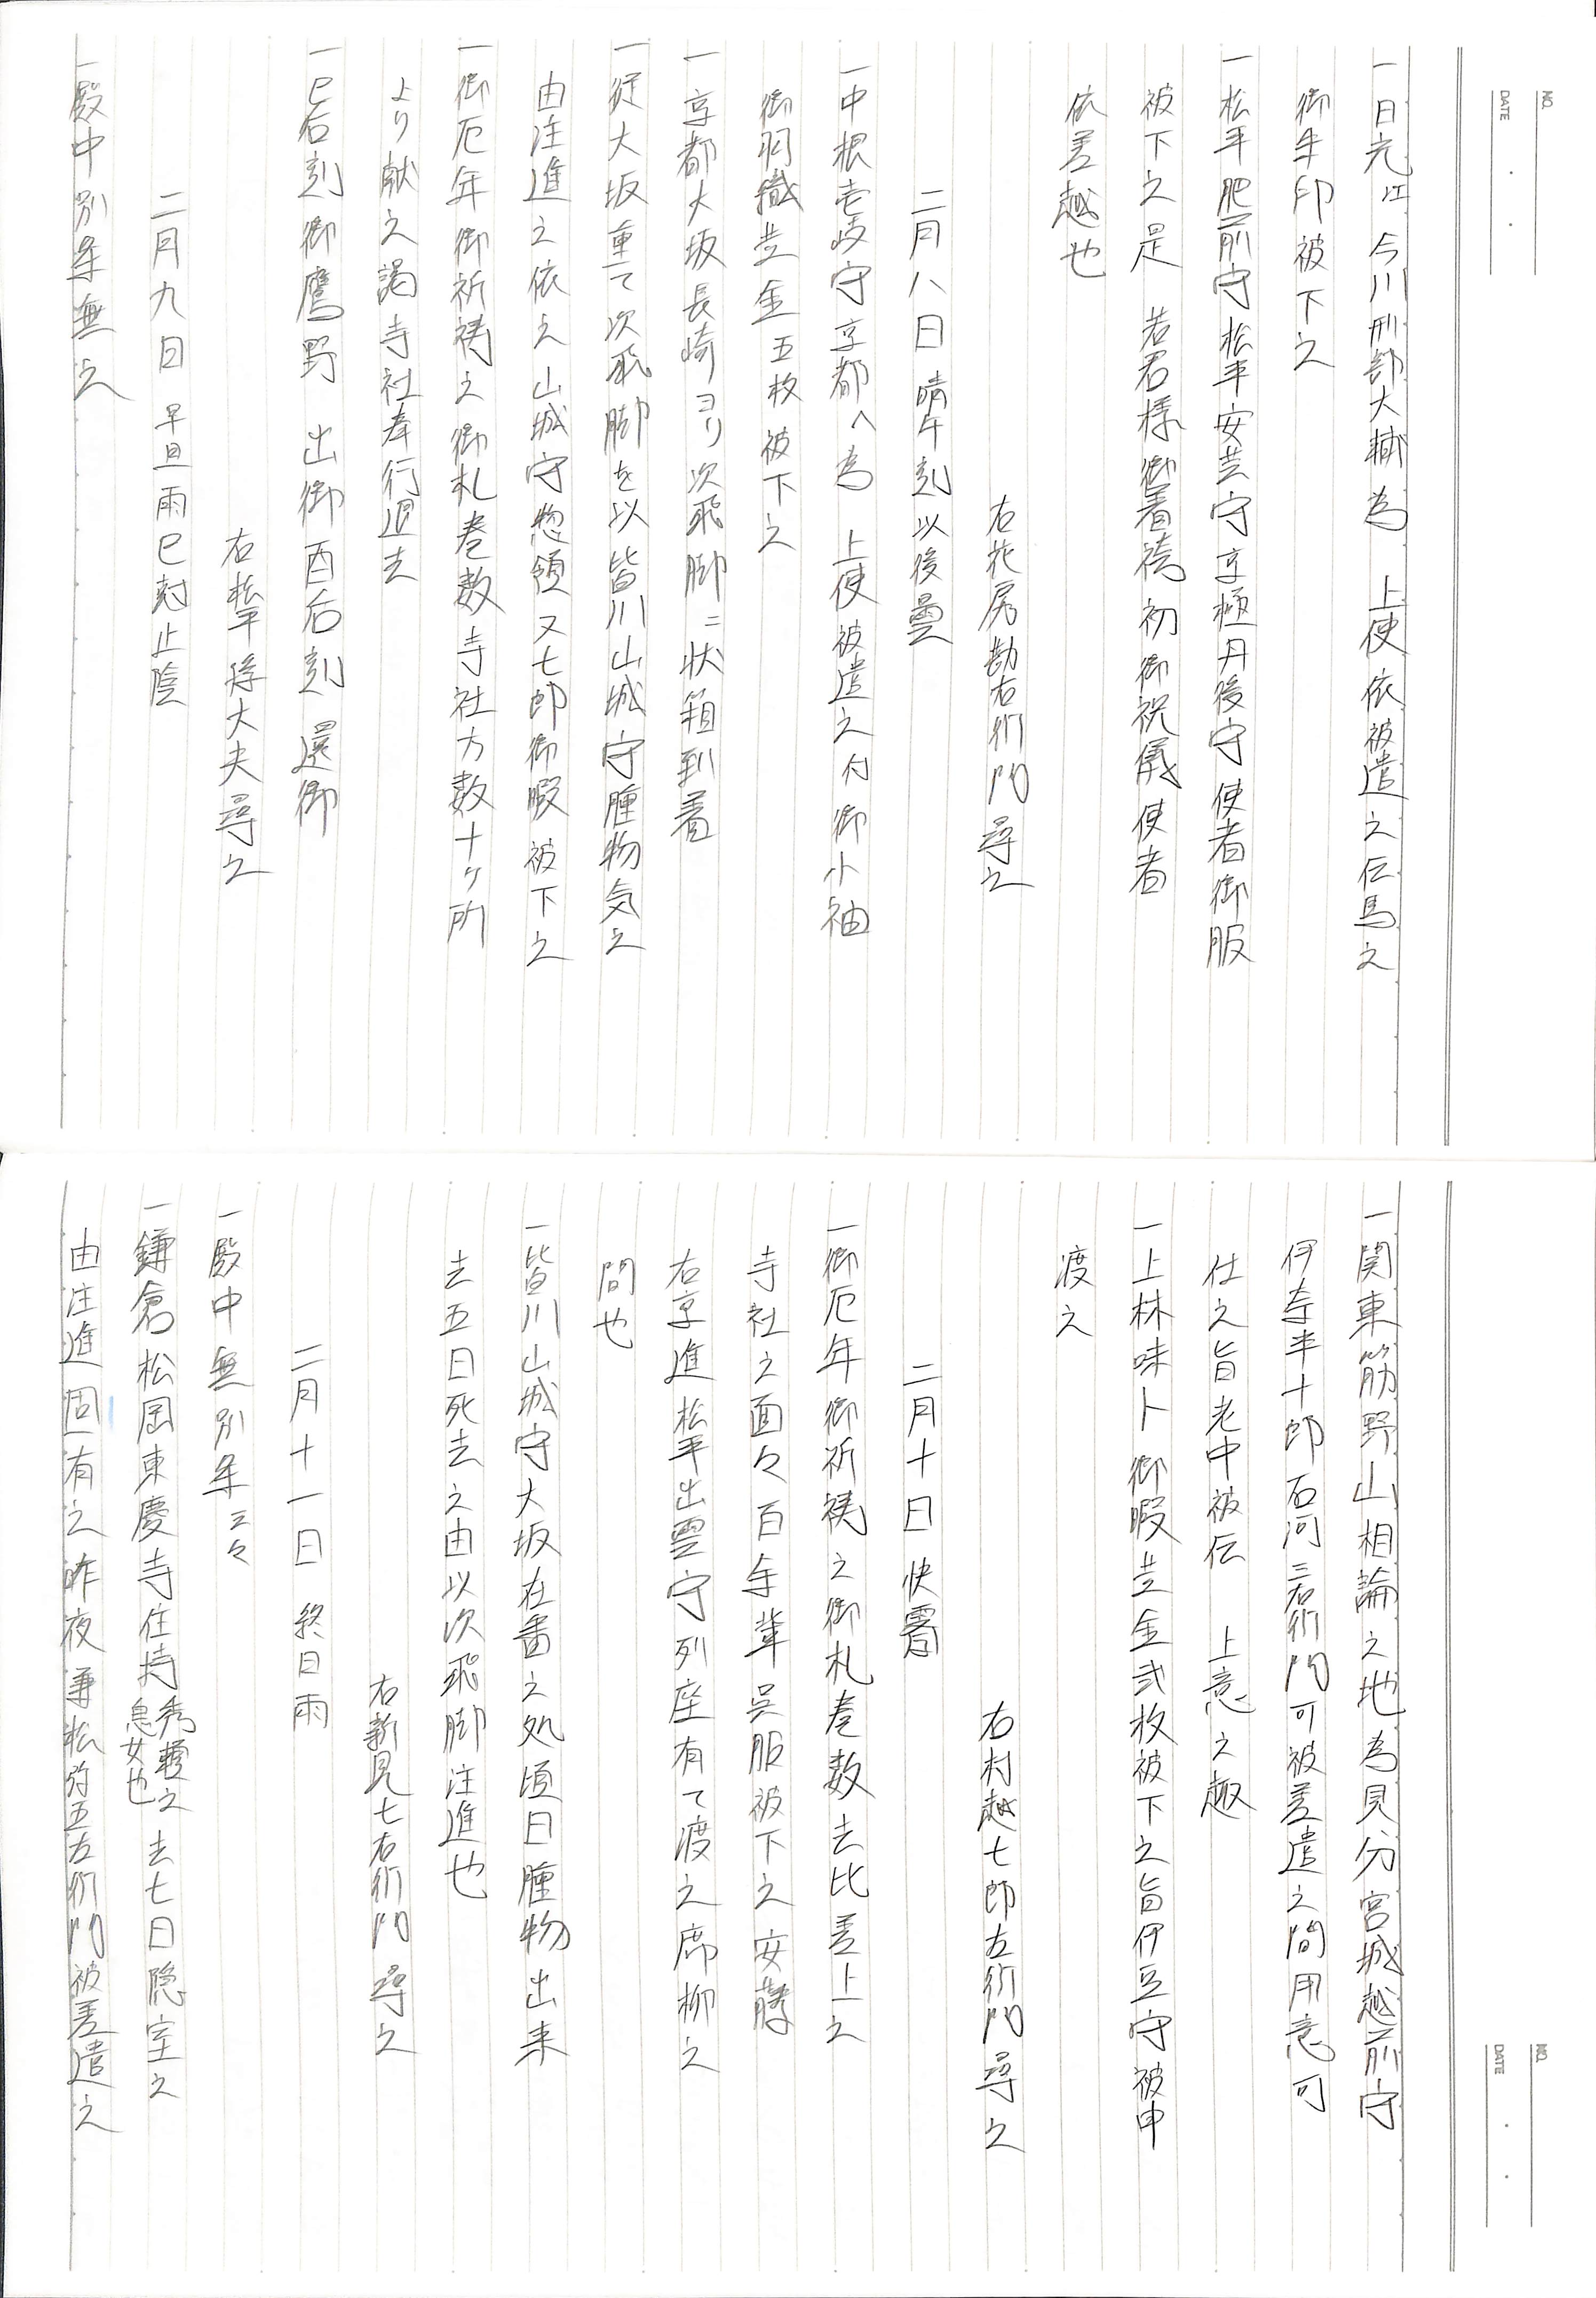 NO.
DATE
一日光江今川刑部大輔為　上使依被遣之伝馬之
御朱印被下之
一松平肥前守松平安芸守京極丹後守使者御服
被下之是　若君様御着袴初御祝儀使者
依差越也
右花房勘右衛門尋之
二月八日晴午刻以後曇
一中根壱岐守京都へ為　上使被遣之付御小袖
御羽織並金五枚被下之
一京都大坂長崎ヨリ次飛脚ニ状箱到着
一従大坂重て次飛脚を以皆川山城守腫物気之
由注進之依之山城守惣領又七郎御暇被下之
一御厄年御祈祷之御札巻数寺社方数十ケ所
より献之謁寺社奉行退去
一巳后刻御鷹野　出御酉后刻　還御
右松平孫大夫尋之
二月九日　早旦雨巳刻止陰
一殿中別条無之
NO.
DATE
一関東筋野山相論之地為見分宮城越前守
伊奈半十郎石河三右衛門可被差遣之間用意可
仕之旨老中被伝　上意之趣
一上林味卜御暇並金弐枚被下之旨伊豆守被申
渡之
右村越七郎左衛門尋之
二月十日　快霽
一御厄年御祈祷之御札巻数去比差上之
寺社之面々百余輩呉服被下之安藤
右京進松平出雲守列座有て渡之席柳之
間也
一皆川山城守大坂在番之処頃日腫物出来
去五日死去之由以次飛脚注進也
右新見七右衛門尋之
二月十一日　終日雨
一殿中無別条云々
一鎌倉松岡東慶寺住持秀頼之息女也去七日隠室之
由注進固有之昨夜兼松弥五左衛門被差遣之